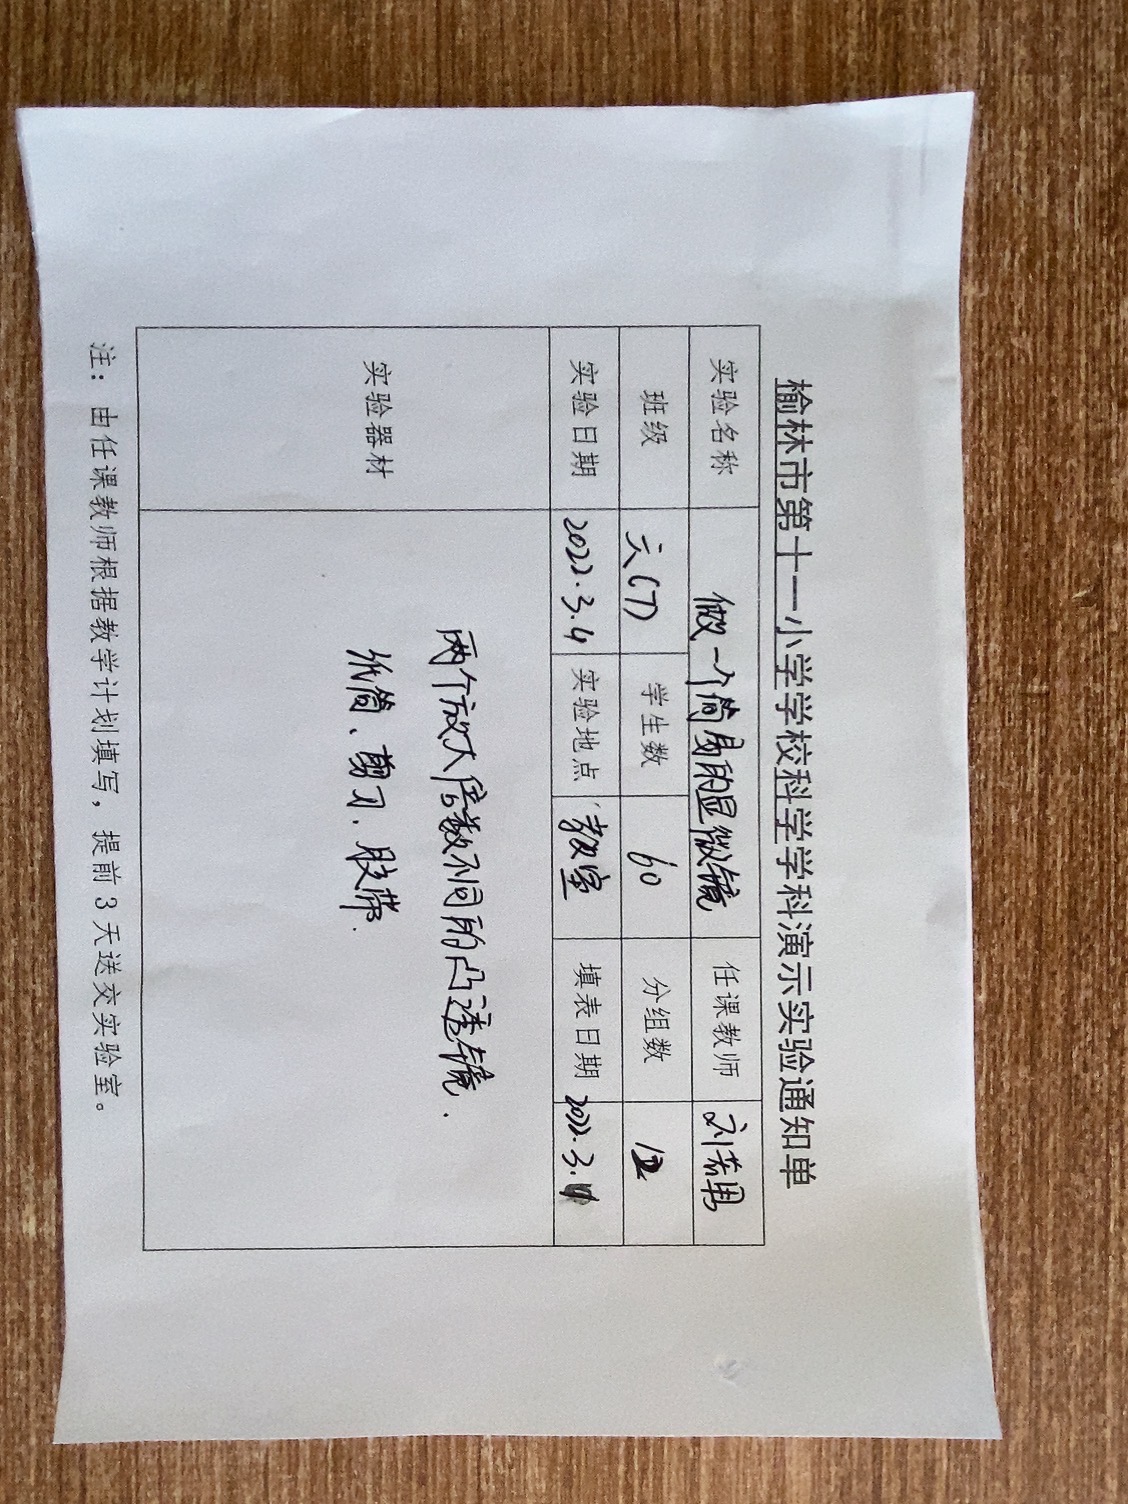 榆林市第十一小学学校科学学科演示实验通知单
实验名称 做一个简易的显微镜 任课教师 刘若男
班级 六(7) 学生数 60 分组数 12
实验日期 2022.3.4 实验地点 教室 填表日期 2022.3.
实验器材 两个放大倍数不同的凸透镜.
纸筒、剪刀、胶带.
注：由任课教师根据教学计划填写，提前3天送交实验室。